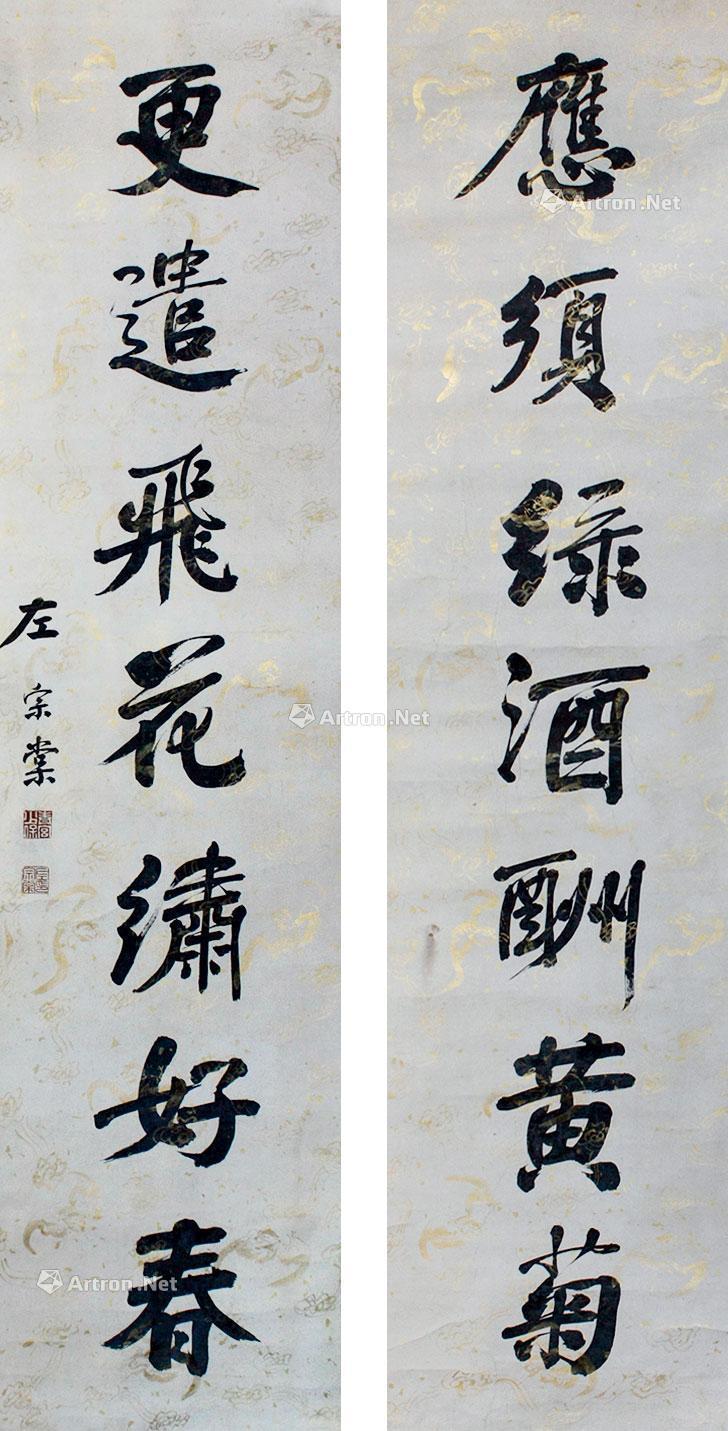 應須綠酒酬黃菊
更遣飛花繡好春
左宗棠
Artron.Net
Artron.Net
Artron.Net